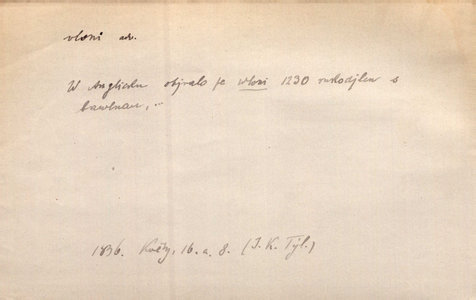 vloni adv.
W Anglicku objralo se wloni 1230 rukodjlen s
bawlnau, ..
1836. Květy, 16. a. 8. (J. K. Tyl.)